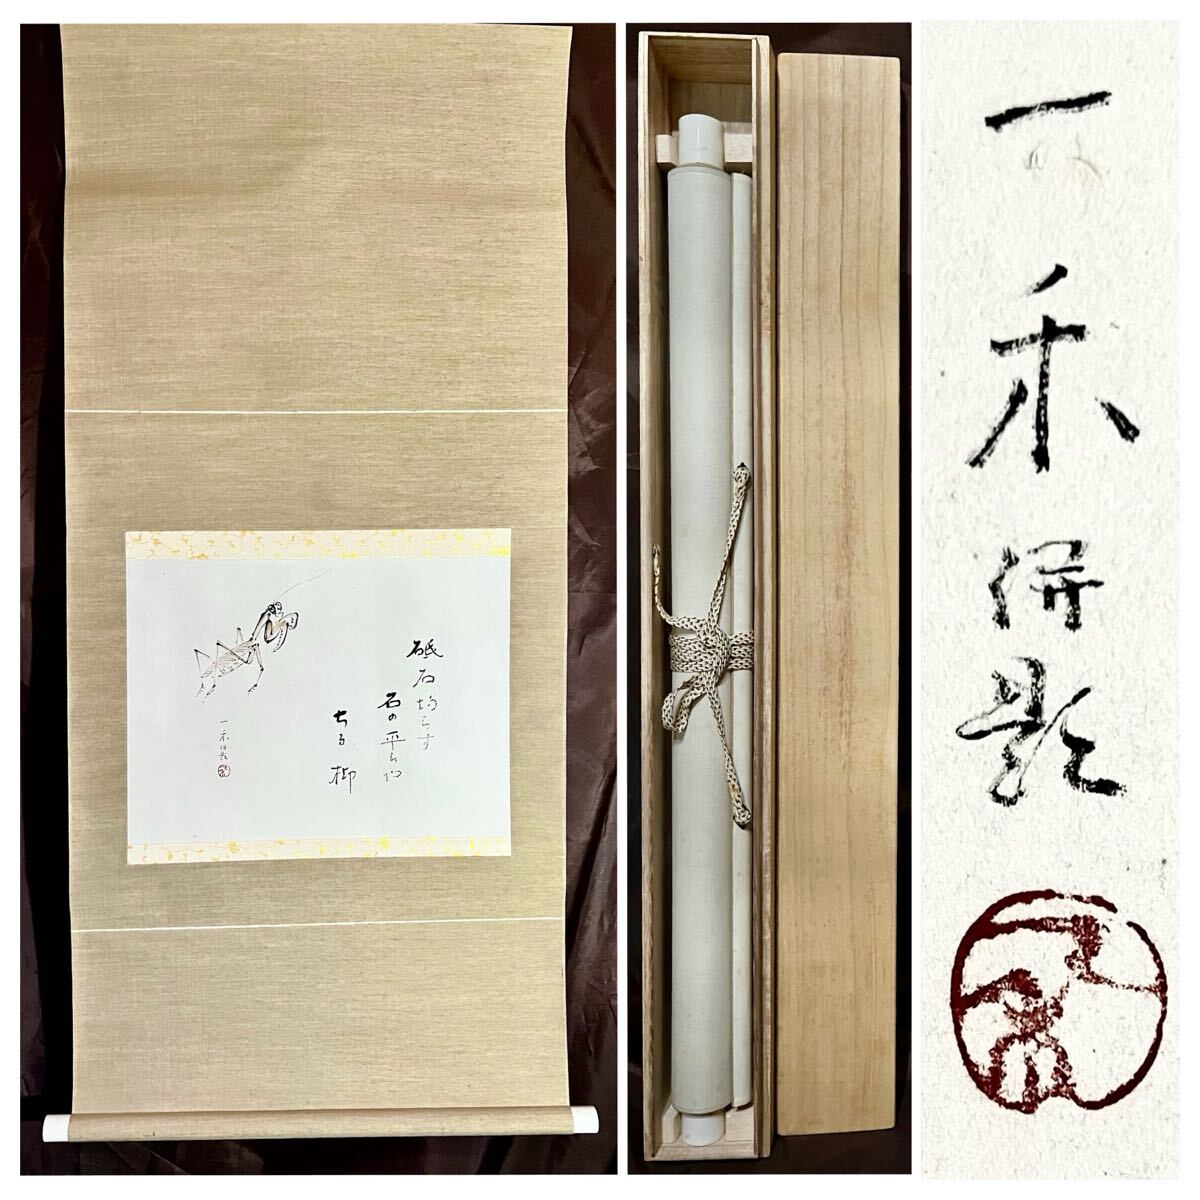 砥石均らす
石の平ら
ちる柳
一禾併
一禾併